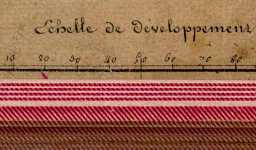 Echelle de Développement
10 20 30 40 50 60 70 80